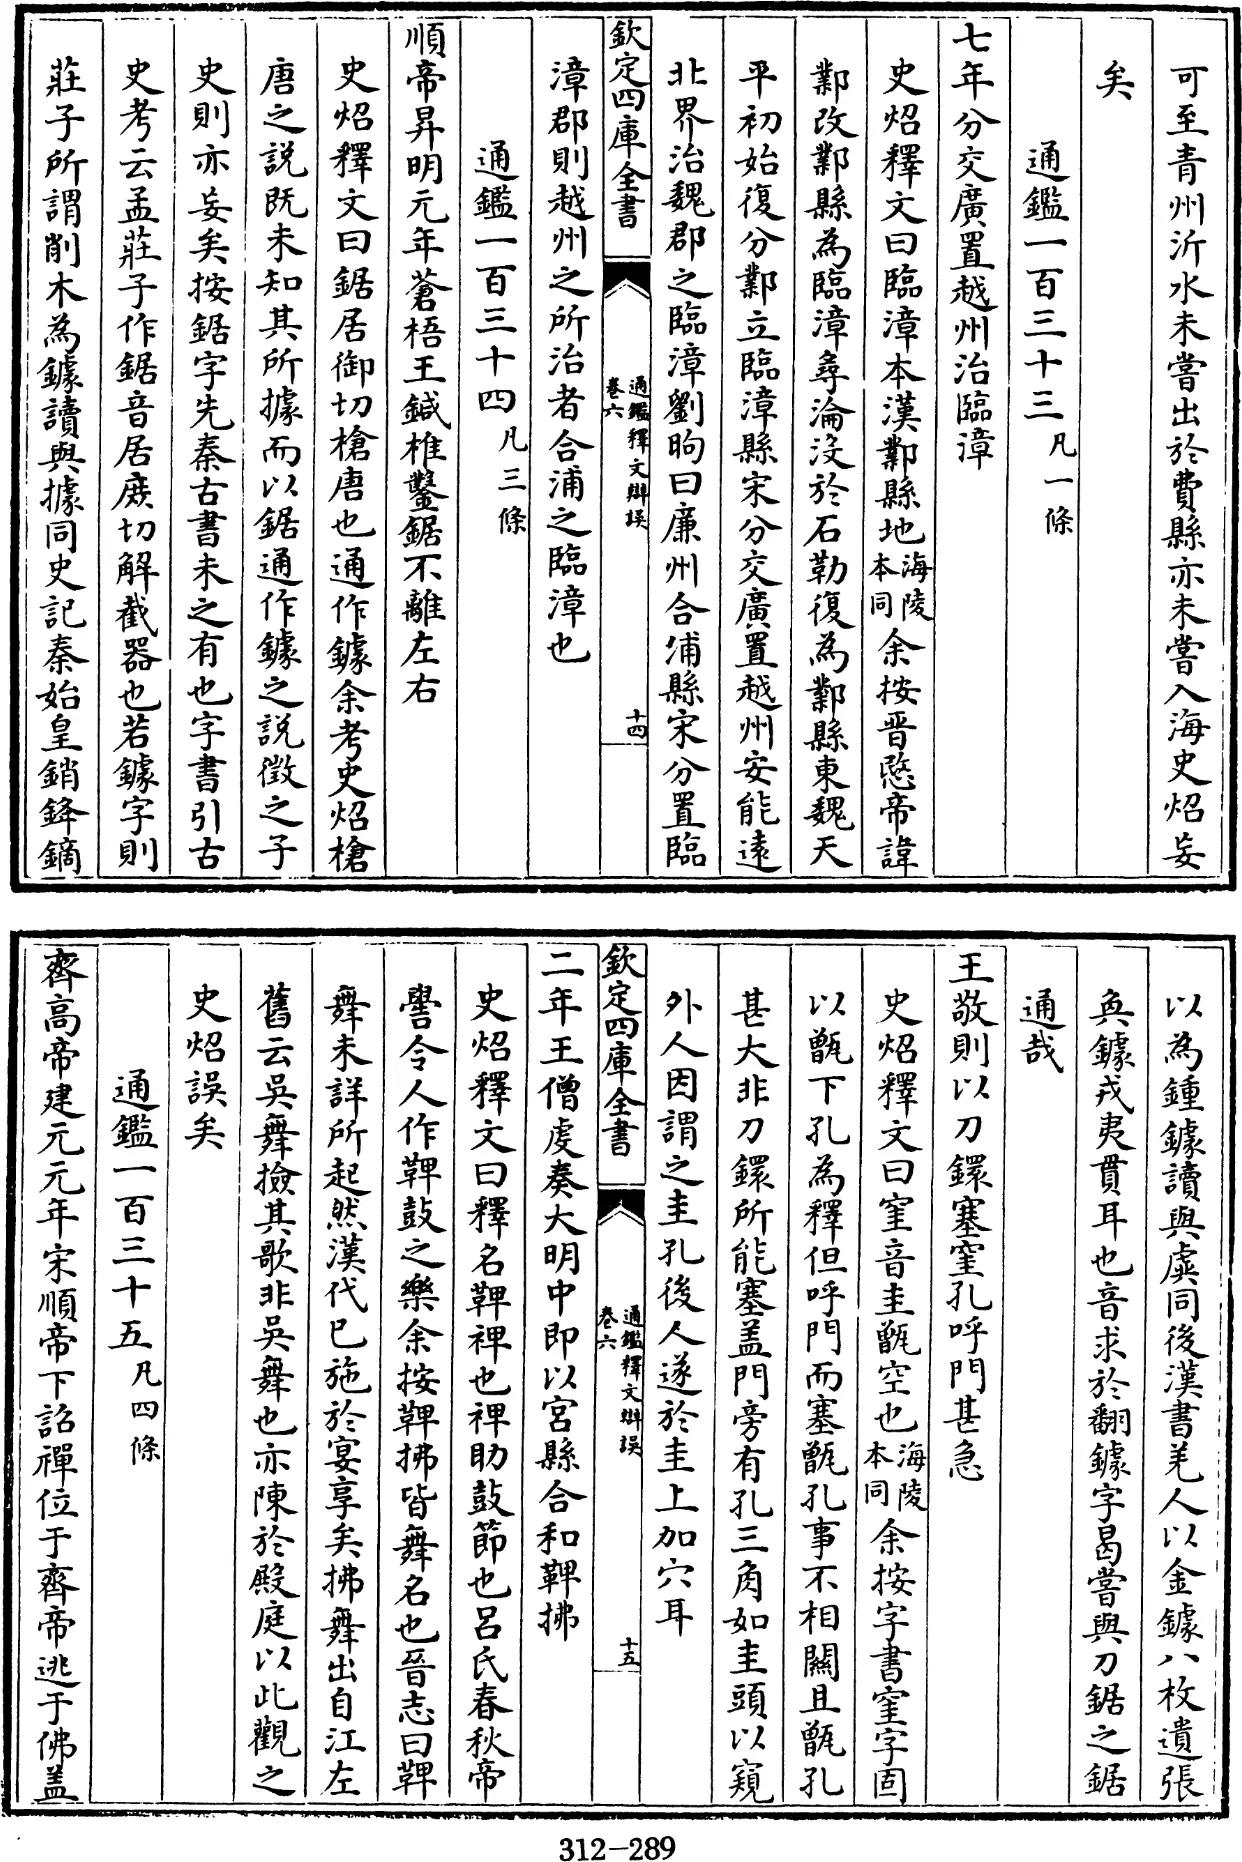 可至青州沂水未嘗出於費縣亦未嘗入海史炤妄
矣
通鑑一百三十三凡一條
七年分交廣置越州治臨漳
史炤釋文曰臨漳本漢鄴縣地海陵本同余按晉愍帝諱
鄴改鄴縣為臨漳尋淪沒於石勒復為鄴縣東魏天
平初始復分鄴立臨漳縣宋分交廣置越州安能遠
北界治魏郡之臨漳劉昫曰廉州合浦縣宋分置臨
欽定四庫全書
通鑑釋文辨誤
卷六
十四
漳郡則越州之所治者合浦之臨漳也
通鑑一百三十四凡三條
順帝昇明元年蒼梧王鍼椎鑿鋸不離左右
史炤釋文曰鋸居御切槍唐也通作鐻余考史炤槍
唐之說既未知其所據而以鋸通作鐻之說徵之子
史則亦妄矣按鋸字先秦古書未之有也字書引古
史考云孟莊子作鋸音居庡切解截器也若鐻字則
莊子所謂削木為鐻讀與據同史記秦始皇銷鋒鏑
以為鍾鐻讀與虡同後漢書羌人以金鐻八枚遺張
奐鐻戎夷貫耳也音求於翻鐻字曷嘗與刀鋸之鋸
通哉
王敬則以刀鐶塞窐孔呼門甚急
史炤釋文曰窐音圭甑空也海陵本同余按字書窐字固
以甑下孔為釋但呼門而塞甑孔事不相關且甑孔
甚大非刀鐶所能塞盖門旁有孔三角如圭頭以窺
外人因謂之圭孔後人遂於圭上加穴耳
欽定四庫全書
通鑑釋文辨誤
卷六
十五
二年王僧虔奏大明中即以宮縣合和鞞拂
史炤釋文曰釋名鞞裨也裨助鼓節也呂氏春秋帝
嚳令人作鞞鼓之樂余按鞞拂皆舞名也晉志曰鞞
舞未詳所起然漢代已施於宴享矣拂舞出自江左
舊云吳舞撿其歌非吳舞也亦陳於殿庭以此觀之
史炤誤矣
通鑑一百三十五凡四條
齊高帝建元元年宋順帝下詔禪位于齊帝逃于佛盖
312-289